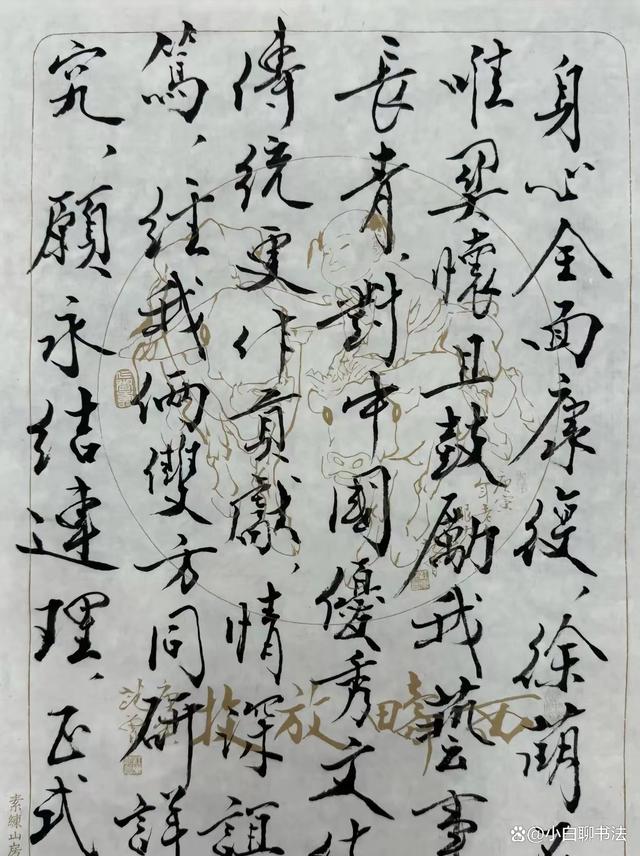 身心全面康復、徐萌
唯契懷且鼓勵我藝事
長青、對中國優秀文化
傳統更作貢獻、情深誼
篤、經我倆雙方同研詳
究、願永結連理、正式
西疇放牧
素練山房
小白聊书法